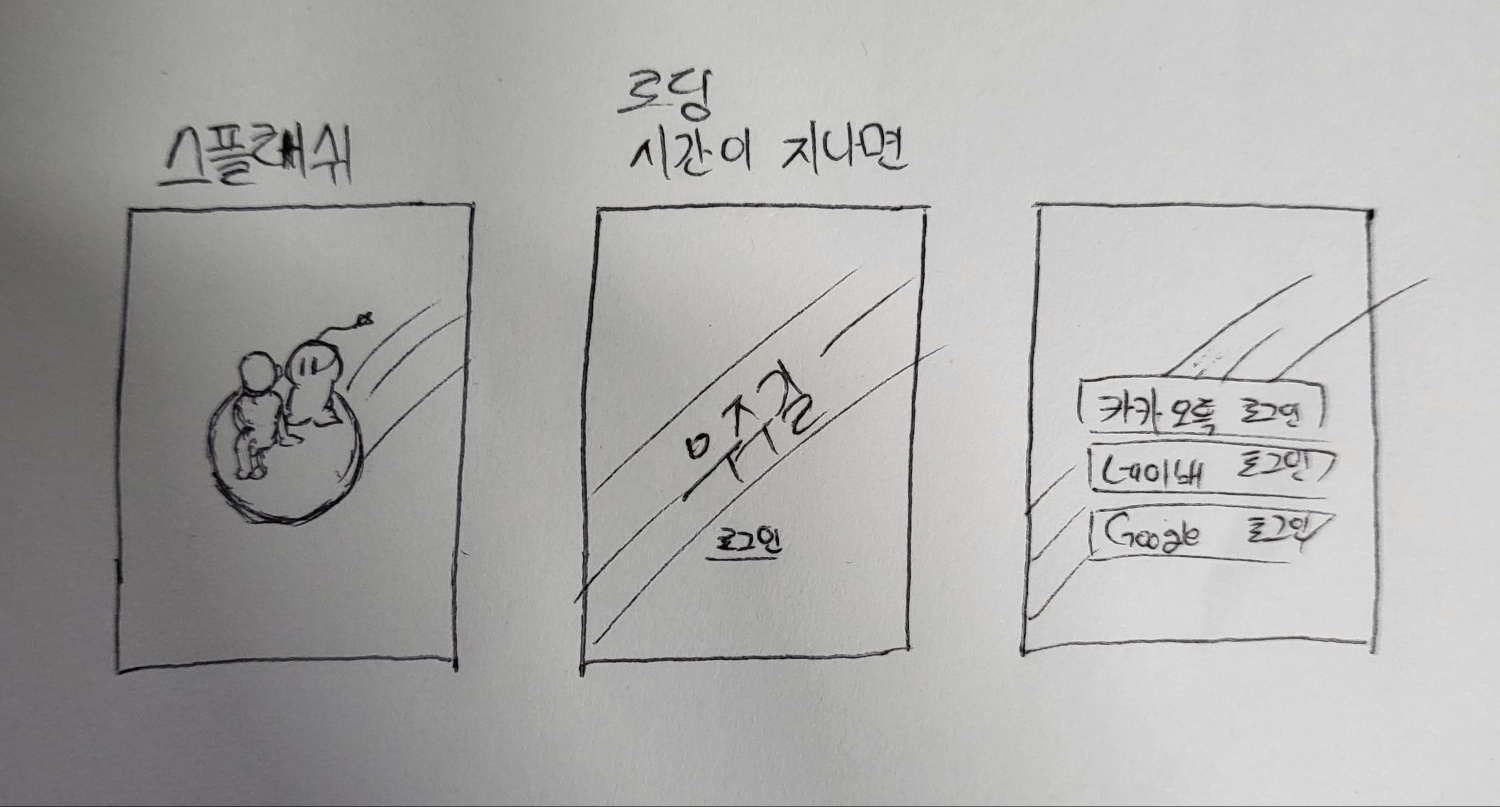 스플래쉬
로딩
시간이 지나면
우주길
로그인
카카오톡 로그인
네이버 로그인
Google 로그인